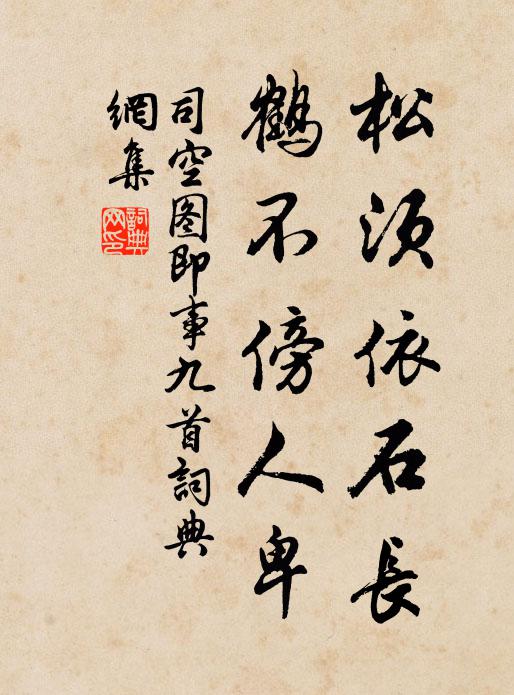 松须依石長
鶴不傍人卑
司空图即事九首詞典
網集
詞典
网印